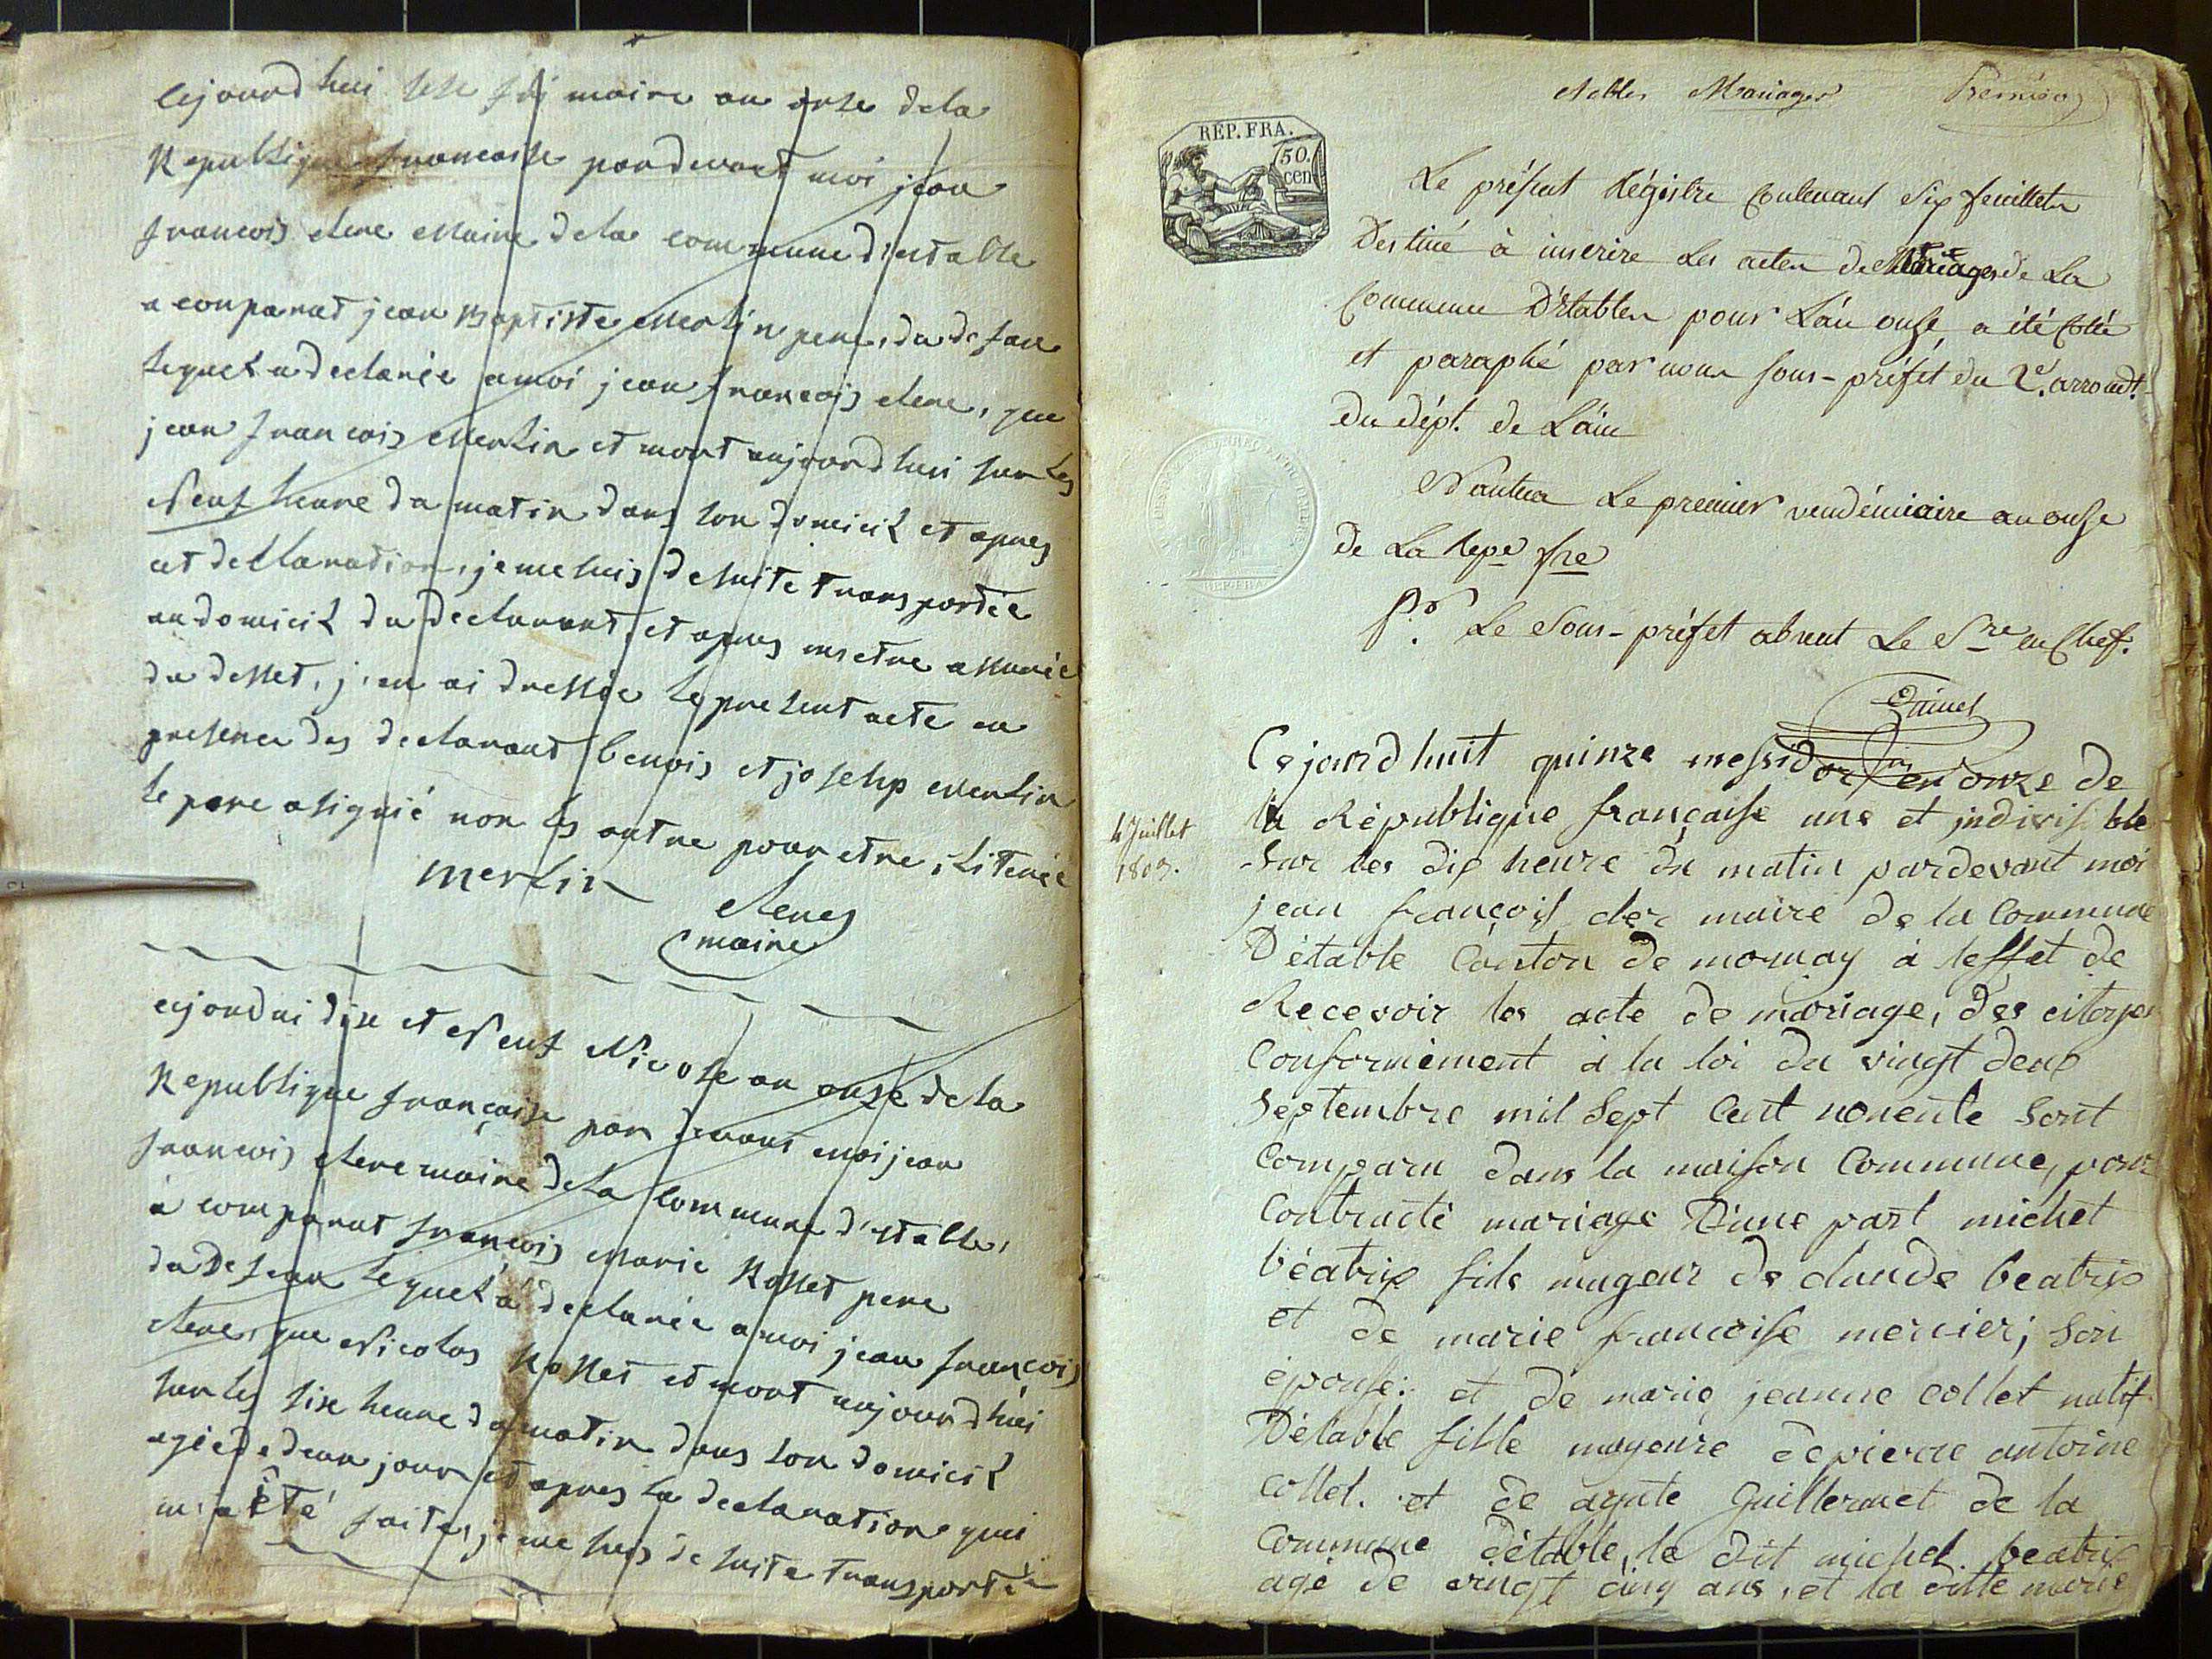 Cejourd hui sese frimaire an onse dela
Republique francaise pardevant moi jean
francois clerc Maire dela commune d'estable
a comparut jean Baptiste Merlin pere, du defunt
lequel a declarée a moi jean francois clerc, que
jean francois Merlin et mort aujourdhui sur les
Neuf heure du matin dans son domicil et apres
cet declaration, je me suis desuite transportée
au domicil du declarant, et apres metre assurée
du desset, j'en ai dressée le present acte en
presence des declarant benois et joseph Merlin
le pere a signié non les autre pour etre ilitenée
merlin
clerc
maire
cejourdui dix et Neuf Nivose an onze dela
Republique française par devant moi jean
francois clerc maire dela commune d'estable,
à comparut françois Marie Rosset pere
du Defunt lequel à declarée a moi jean françois
clerc, que Nicolas Rosset et mort aujourdhui
sur les six heure du matin dans son domicil
agée de deux jour et apres la declaration qui
m'a été faites, je me suis de suite transportée
Actes Mariages Premier
REP. FRA.
50.
cen
Le présent Régistre contenant six feuillets
Destiné à inscrire les actes de Mariages de La
Commune D'étables pour L'an onze, a été Cotté
et paraphé par nous sous-préfet du 2e. arrondt.
du dépt. de L'ain
Nantua Le premier vendémiaire an onze
de La Repe fre
Pr. Le Sous-préfet absent Le Sre en Chef.
Cejourdhuit quinze messidor en onze de
la République française une et indivisible
sur les dix heure du matin pardevant moi
jean françois clerc maire de la Commune
D'étable Canton de mornay à leffet de
Recevoir les acte de mariage, des citoyen
Conformément à la loi du vingt deux
septembre mil sept Cent nonente sont
Comparu dans la maison Commune, pour
Contracté mariage D'une part michel
béatrix fils mageur de claude beatrix
et de marie francoise mercier; son
épouse; et de marie jeanne collet natif
Détable fille mageure de pierre antoine
collet. et de agate Guillermet de la
Commune détable, le dit michel beatrix
agé de vingt cinq ans, et la ditte marie
4 Juillet
1803.